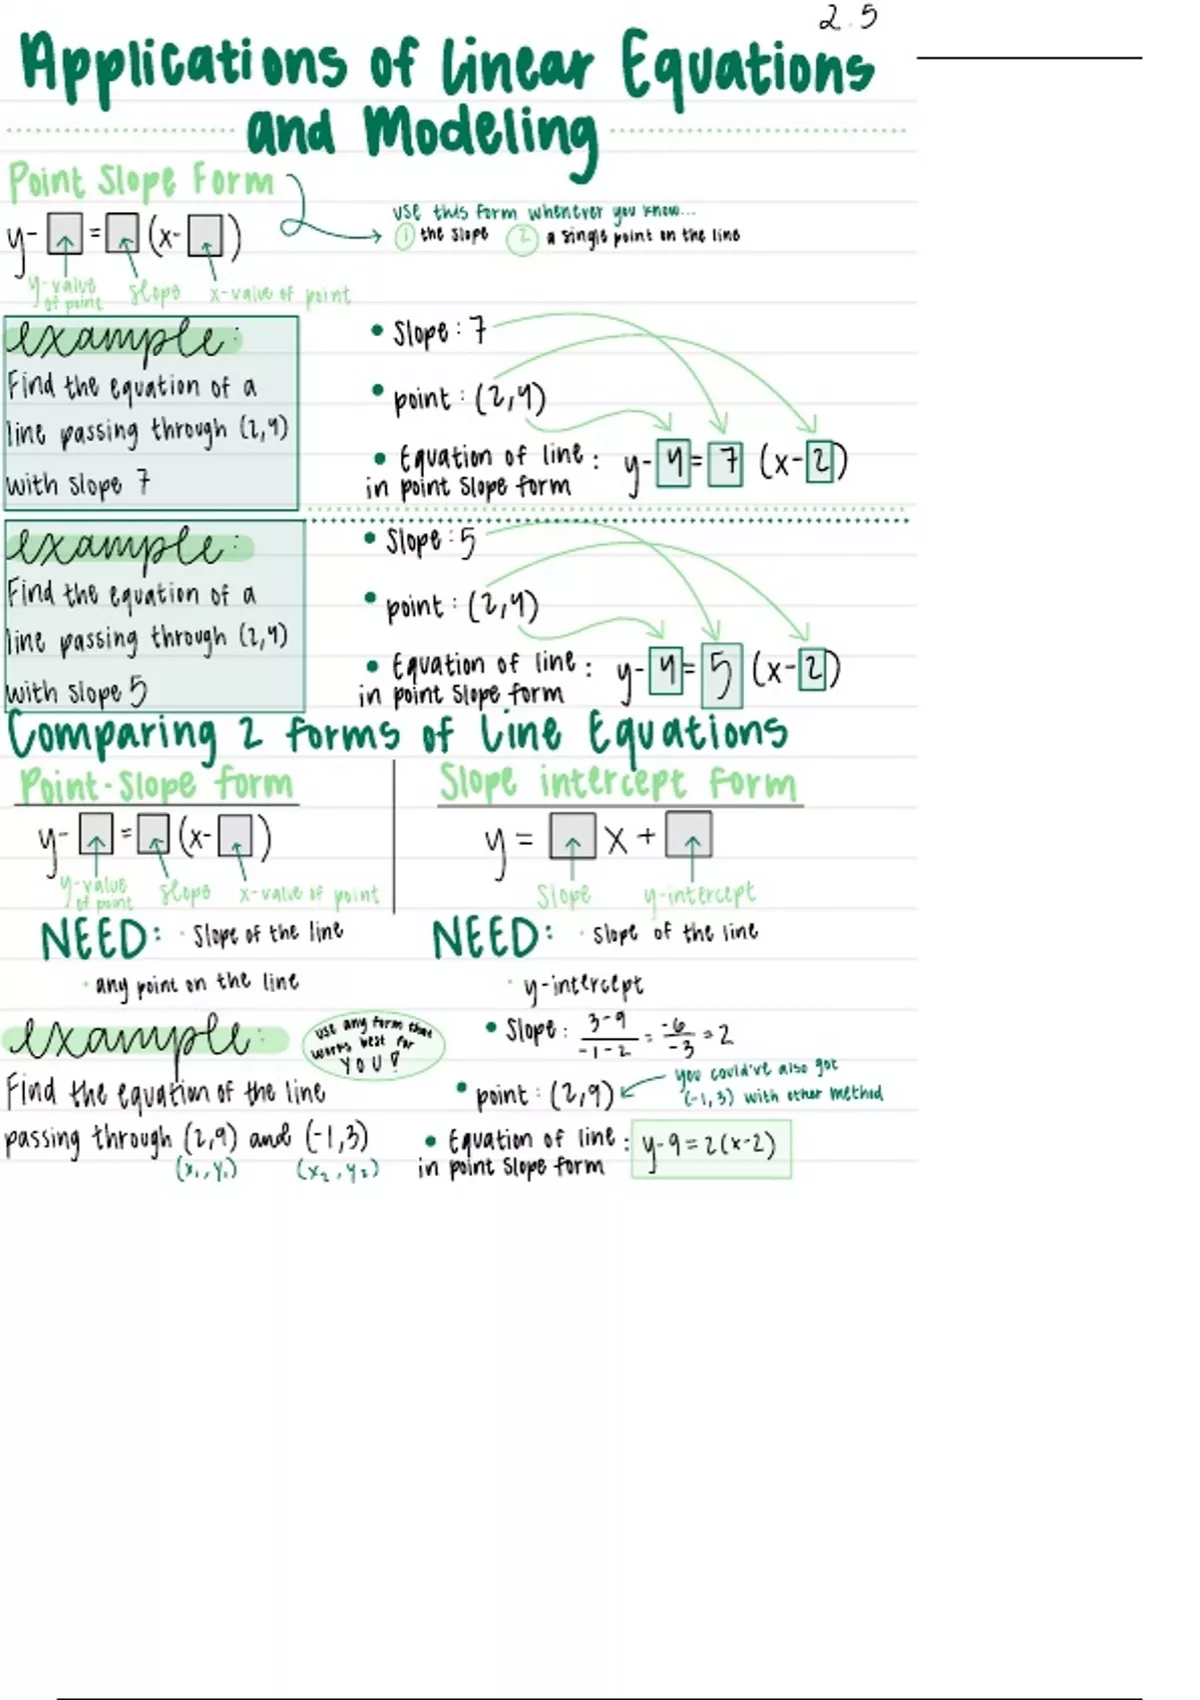 2.5
Applications of Linear Equations
and Modeling
Point Slope Form
use this form whenever you know...
1 the slope 2 a single point on the line
y-□=□(x-□)
y-value of point slope x-value of point
example:
Find the equation of a
line passing through (2,4)
with slope 7
• Slope: 7
• point: (2,4)
• Equation of line: y-4=7(x-2)
in point slope form
example:
Find the equation of a
line passing through (2,4)
with slope 5
• Slope: 5
• point: (2,4)
• Equation of line: y-4=5(x-2)
in point slope form
Comparing 2 forms of Line Equations
Point-Slope form
y-□=□(x-□)
y-value of point slope x-value of point
NEED: · Slope of the line
· any point on the line
Slope intercept Form
y=□x+□
Slope y-intercept
NEED: · Slope of the line
· y-intercept
example:
use any form that
works best for
YOU!
Find the equation of the line
passing through (2,9) and (-1,3)
(x₁,y₁) (x₂,y₂)
• Slope: 3-9/-1-2 = -6/-3 = 2
• point: (2,9) you could've also got
(-1,3) with other method
• Equation of line: y-9=2(x-2)
in point slope form